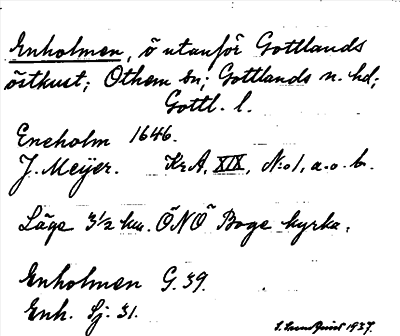 Enholmen, ö utanför Gottlands
östkust; Othem sn; Gottlands n. hd;
Gottl. l.
Eneholm 1646.
J. Meÿer. KrA, XIX, No 1, a. o. b.
Läge 3½ km. ÖNÖ Boge kyrka.
Enholmen G. 39.
Enh. Sj. 31.
1937.